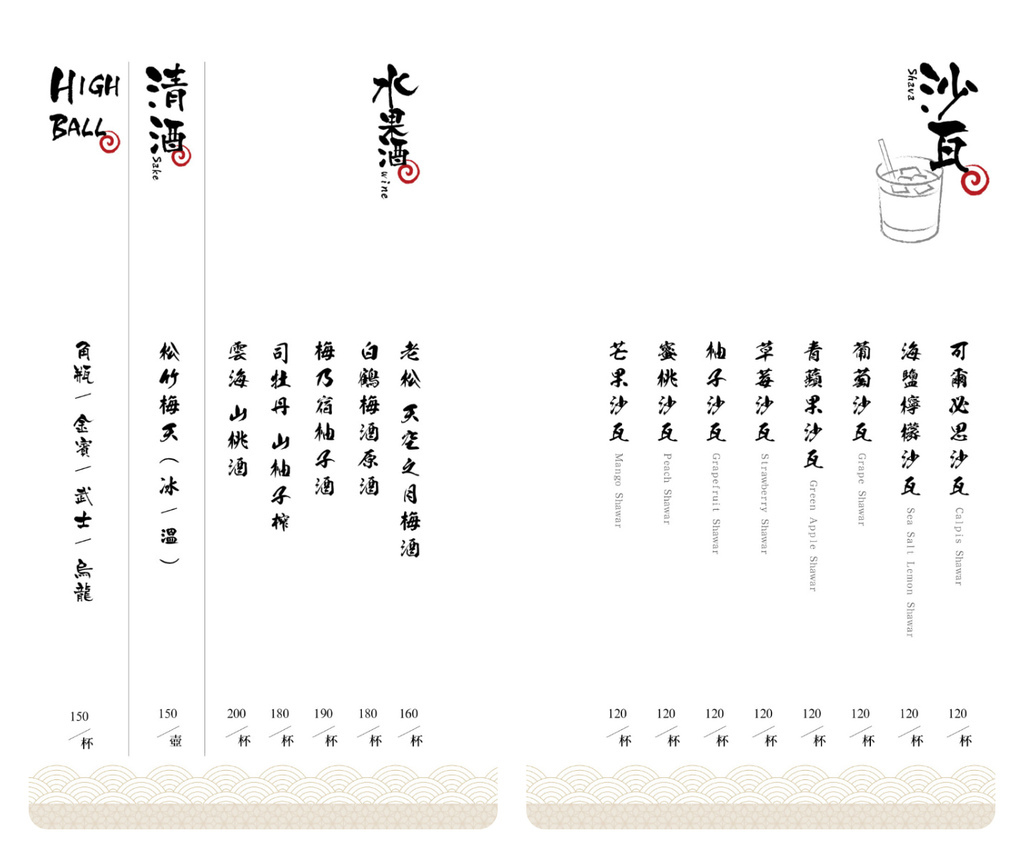 沙瓦
Shava
可爾必思沙瓦 Calpis Shawar
120/杯
海鹽檸檬沙瓦 Sea Salt Lemon Shawar
120/杯
葡萄沙瓦 Grape Shawar
120/杯
青蘋果沙瓦 Green Apple Shawar
120/杯
草莓沙瓦 Strawberry Shawar
120/杯
柚子沙瓦 Grapefruit Shawar
120/杯
蜜桃沙瓦 Peach Shawar
120/杯
芒果沙瓦 Mango Shawar
120/杯
水果酒
wine
老松 天空之月梅酒
160/杯
白鶴梅酒原酒
180/杯
梅乃宿柚子酒
190/杯
司牡丹 山柚子搾
180/杯
雲海 山桃酒
200/杯
清酒
Sake
松竹梅天(冰/溫)
150/壺
HIGH
BALL
角瓶/金賓/武士/烏龍
150/杯